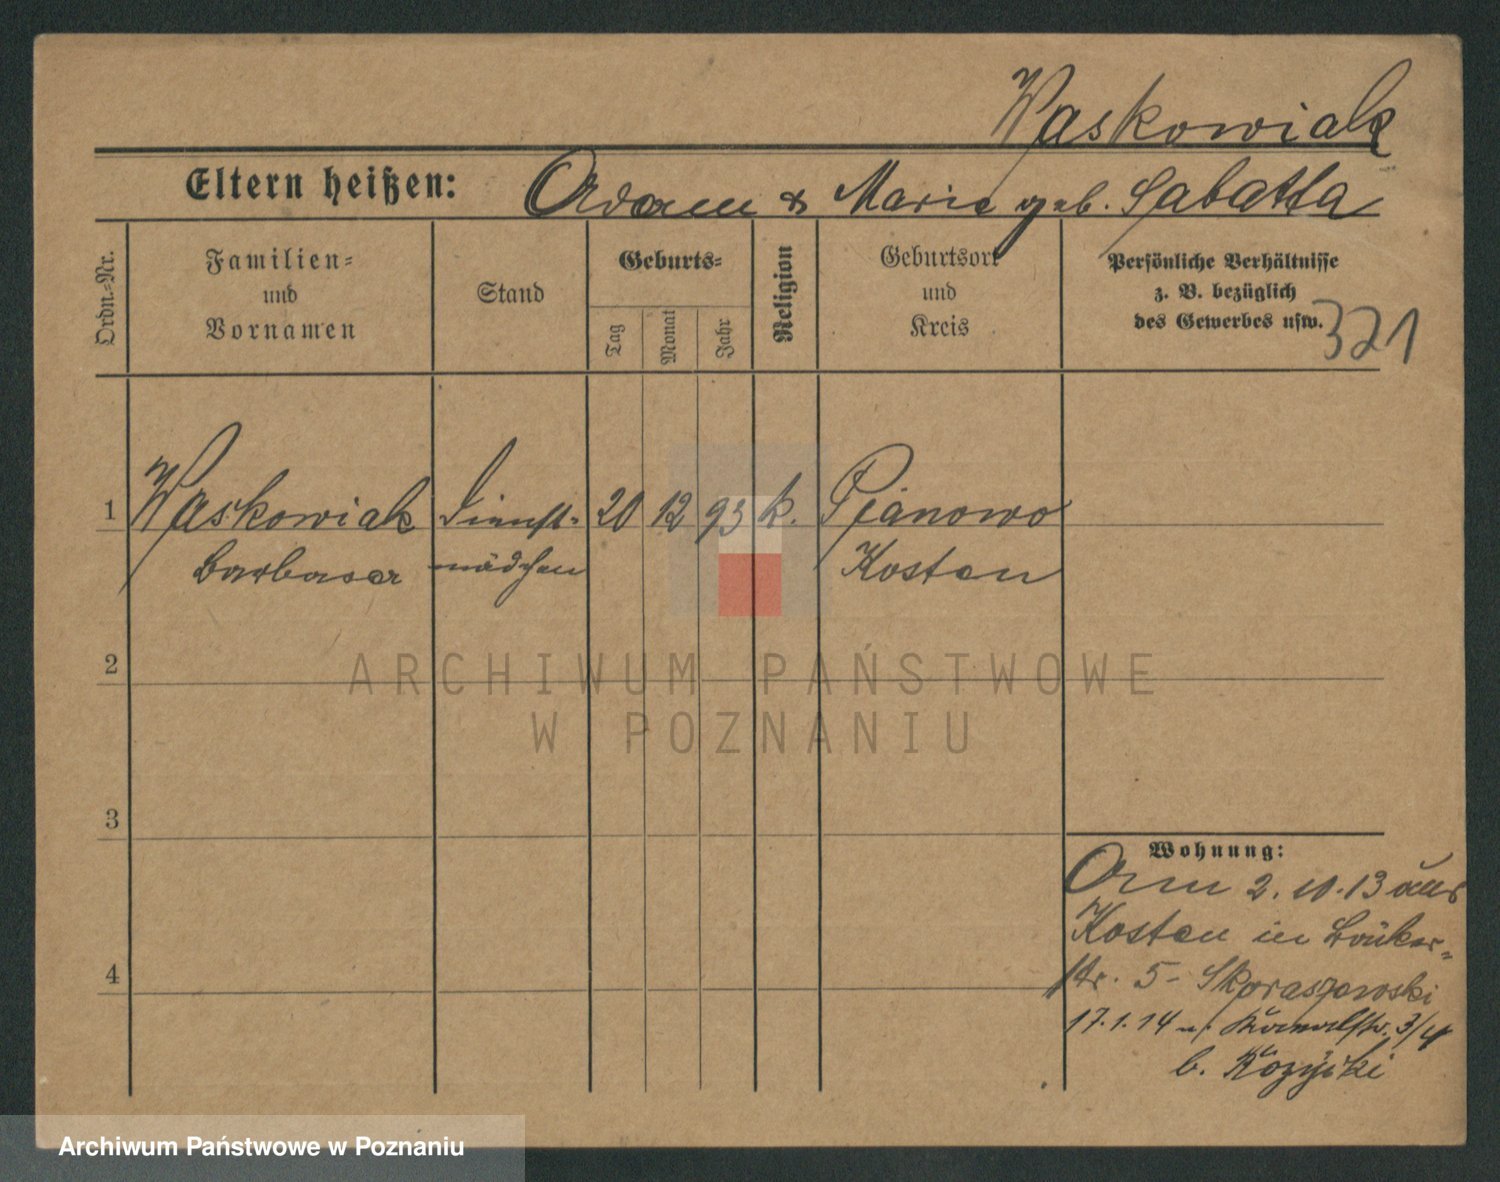 Waskowiak
Eltern heißen: Adam & Marie geb. Sabatta
Ordn.-Nr.
Familien-
und
Vornamen
Stand
Geburts-
Tag
Monat
Jahr
Religion
Geburtsort
und
Kreis
Persönliche Verhältnisse
z. B. bezüglich
des Gewerbes usw.
321
1 Waskowiak Dienst- 20 12 93 k. Pianowo
Barbara mädchen Kosten
2
ARCHIWUM PAŃSTWOWE
W POZNANIU
3
Wohnung:
2. 10. 13 aus
Kosten in Bäcker-
str. 5 - Skoraszewski
17.1.14 n. Kanalstr. 3/4
b.
4
Archiwum Państwowe w Poznaniu